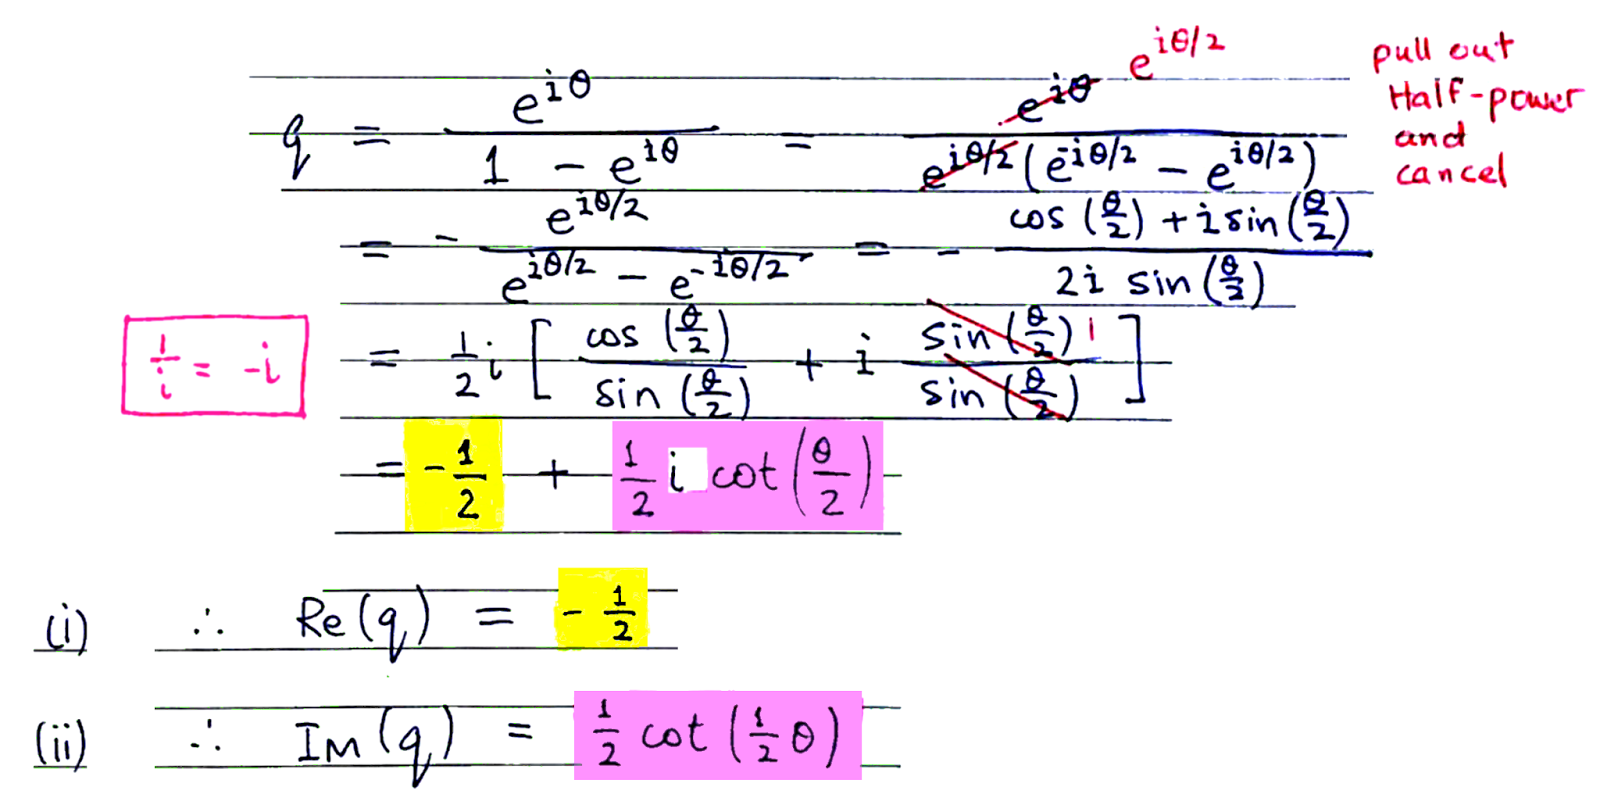 q = e^{iθ} / (1 - e^{iθ}) = e^{iθ} e^{iθ/2} / (e^{iθ/2} (e^{-iθ/2} - e^{iθ/2}))
pull out
Half-power
and
cancel
= - e^{iθ/2} / (e^{iθ/2} - e^{-iθ/2}) = - (cos (θ/2) + i sin (θ/2)) / (2i sin (θ/2))
1/i = -i
= 1/2 i [ cos (θ/2) / sin (θ/2) + i sin (θ/2) / sin (θ/2) 1 ]
= -1/2 + 1/2 i cot (θ/2)
(i) ∴ Re(q) = -1/2
(ii) ∴ Im(q) = 1/2 cot (1/2 θ)